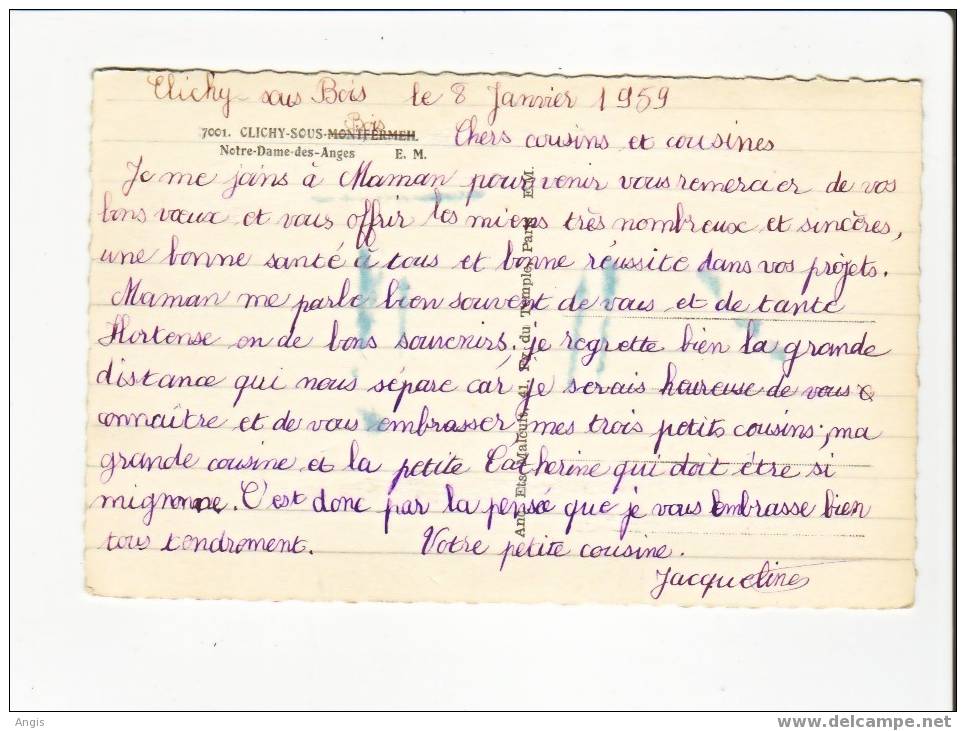 Clichy-sous Bois le 8 Janvier 1959
Bois
7001. CLICHY-SOUS-MONTFERMEIL
Notre-Dame-des-Anges E. M.
Chers cousins et cousines
Je me joins à Maman pour venir vous remercier de vos
bons vœux et vous offrir les miens très nombreux et sincères,
une bonne santé à tous et bonne réussite dans vos projets.
Maman me parle bien souvent de vous et de tante
Hortense on de bons souvenirs, je regrette bien la grande
distance qui nous sépare car je serais heureuse de vous
connaître et de vous embrasser, mes trois petits cousins, ma
grande cousine et la petite Catherine qui doit être si
mignonne. C'est donc par la pensée que je vous embrasse bien
tous tendrement. Votre petite cousine.
Jacqueline
Anc. Ets Malcuit, 41, Fg. du Temple, Paris E.M.
Angis
www.delcampe.net